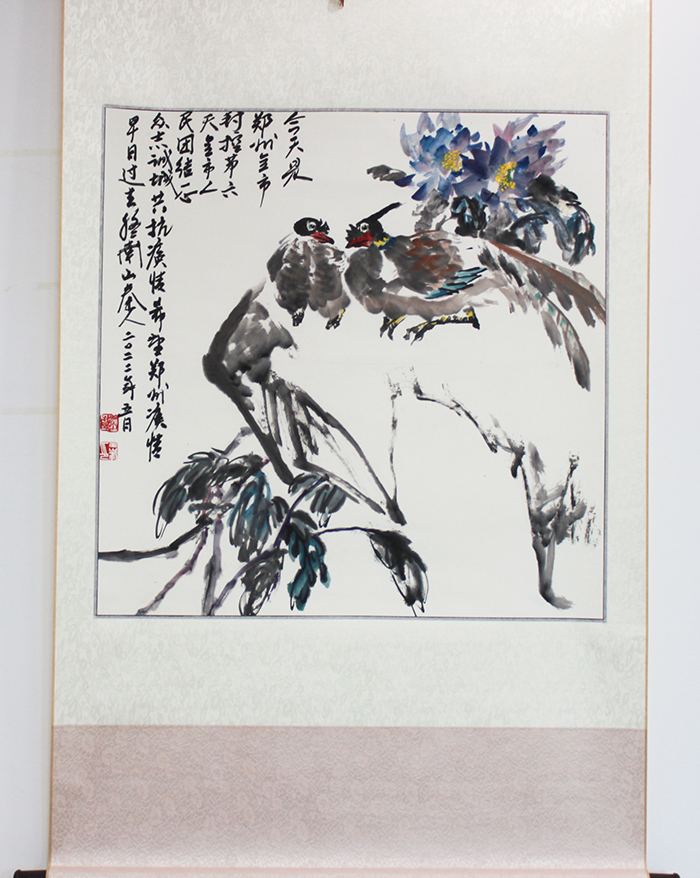 今天是
郑州全市
封控第六
天全市人
民团结一心
众志诚城共抗疫情希望郑州疫情
早日过去 终南山秦人二〇二二年五月